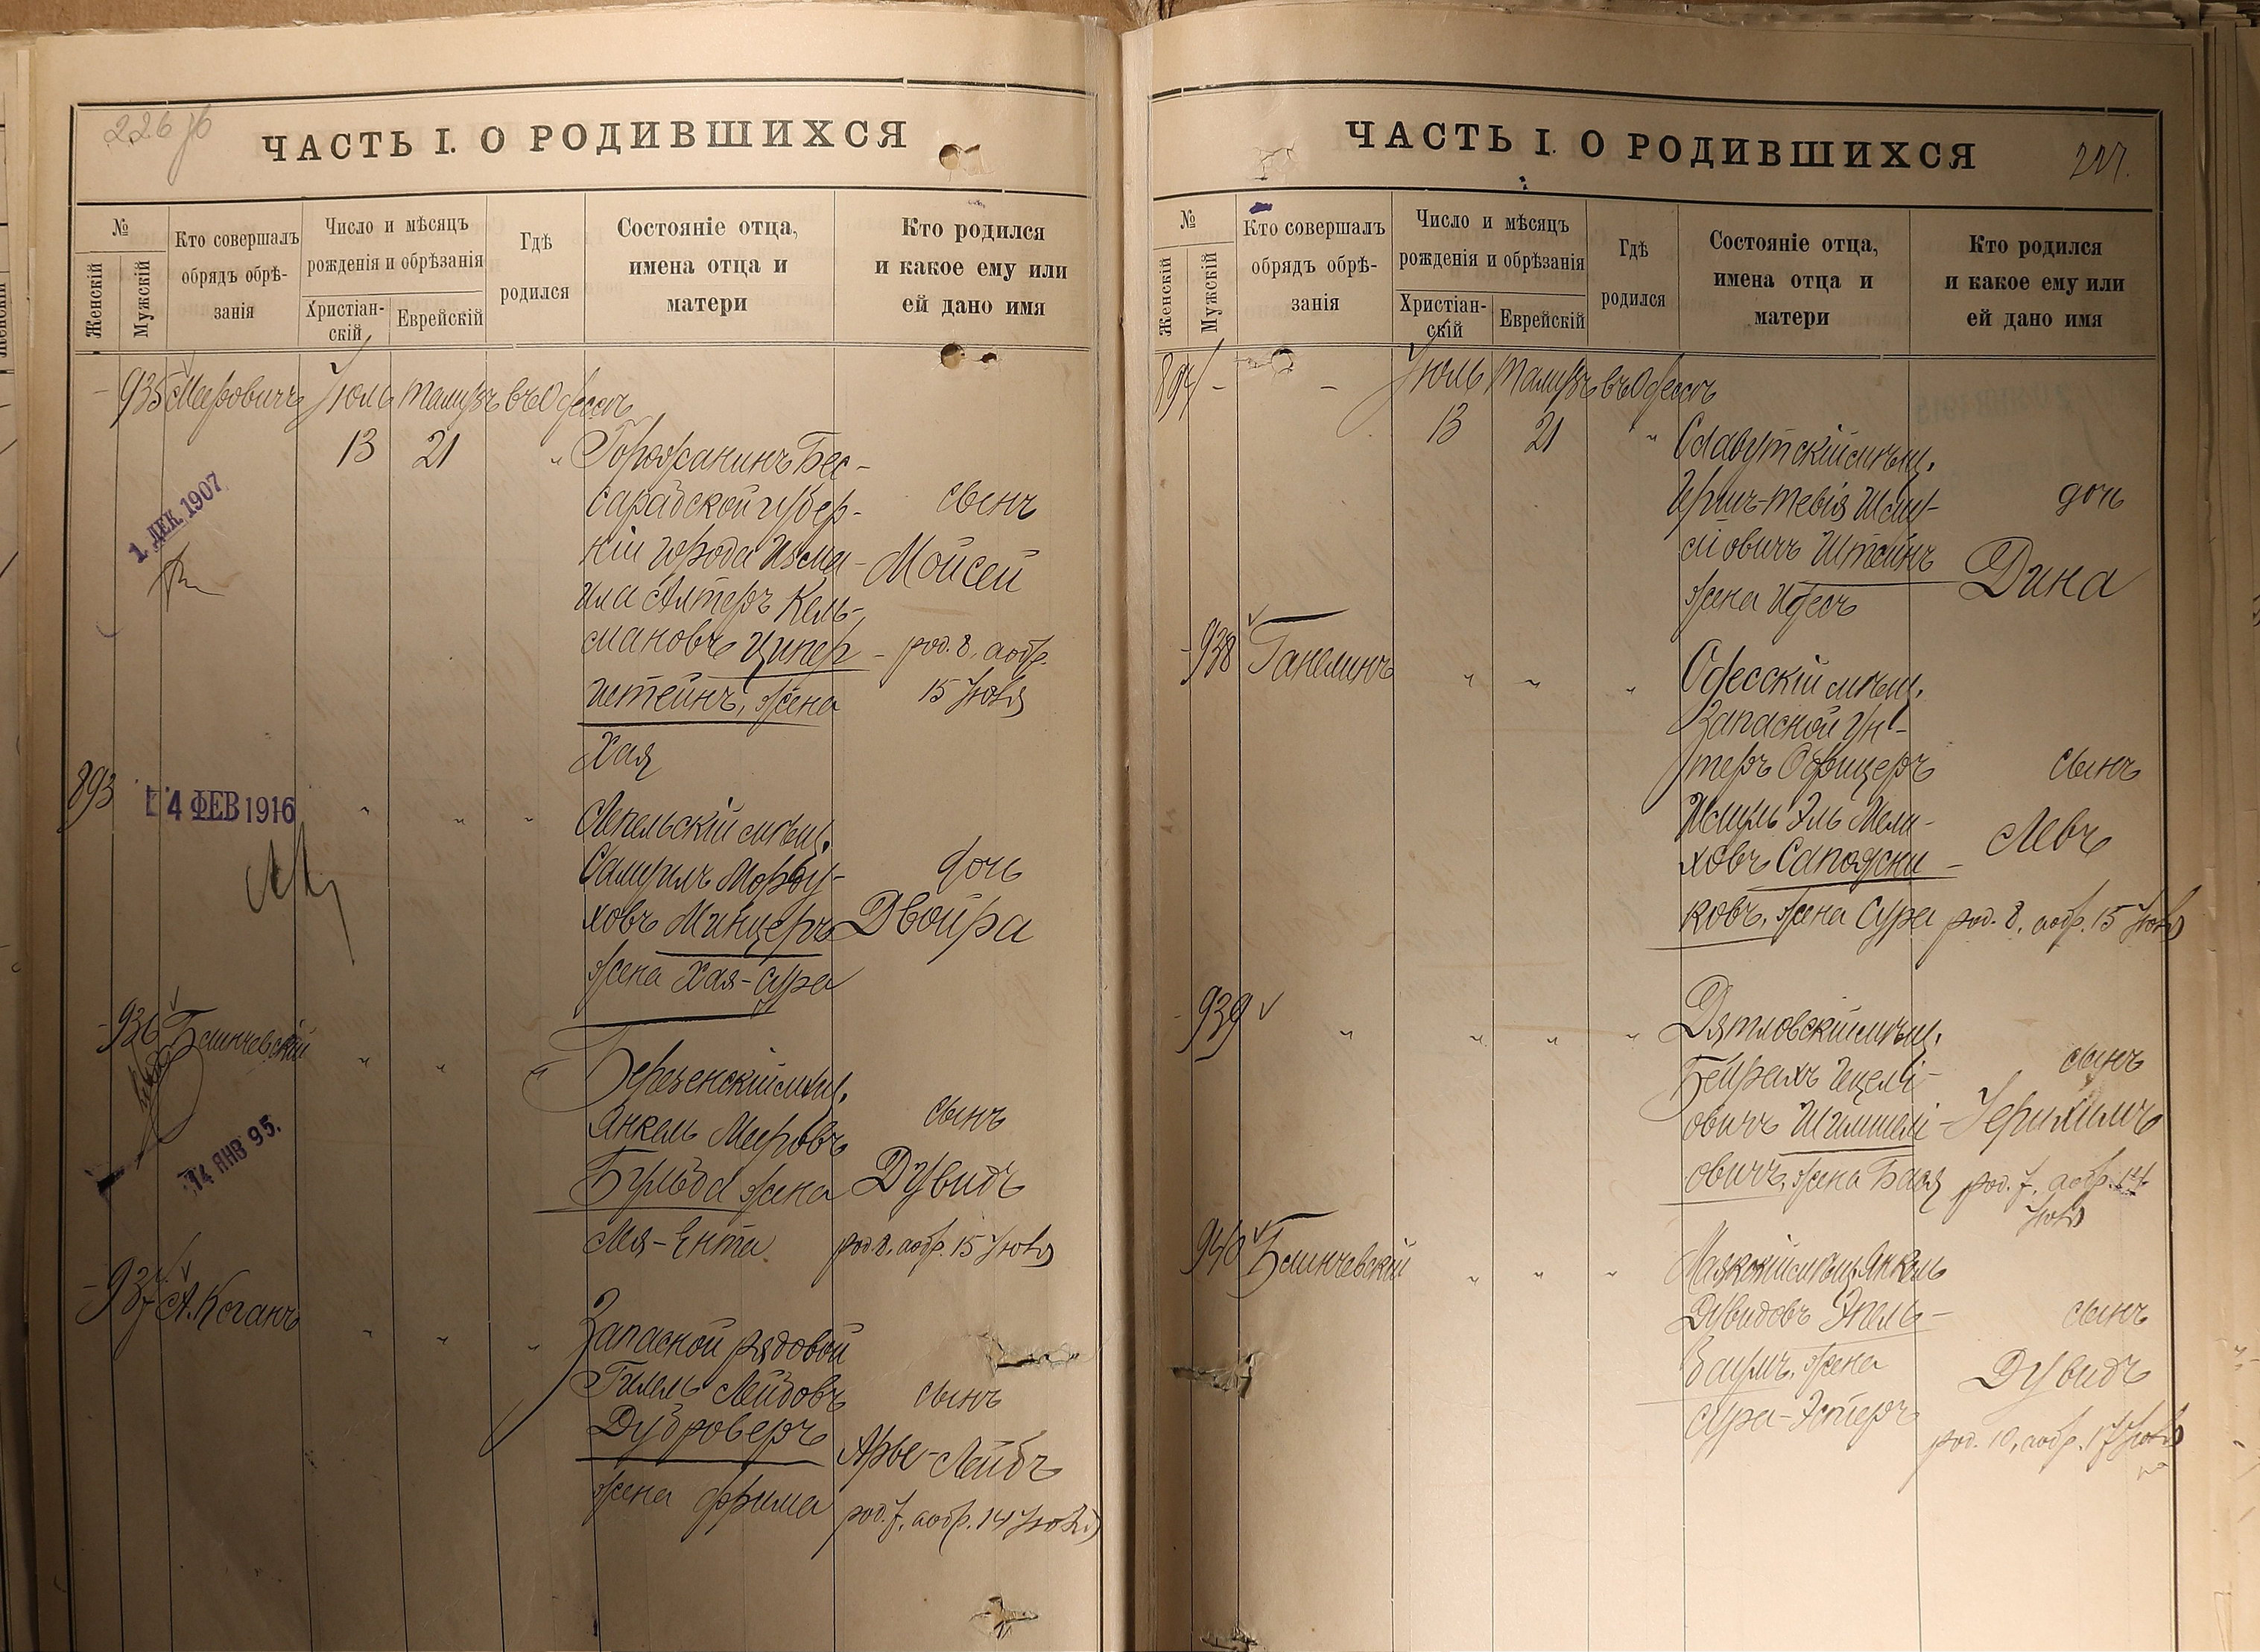 226 об
ЧАСТЬ I. О РОДИВШИХСЯ
№
Женскій
Мужскій
Кто совершалъ
обрядъ обрѣ-
занія
Число и мѣсяцъ
рожденія и обрѣзанія
Христіан-
скій
Еврейскій
Гдѣ
родился
Состояніе отца,
имена отца и
матери
Кто родился
и какое ему или
ей дано имя
- 935 Меировичъ Іюль Тамузъ въ Одессѣ
13 21 " Горожанинъ Бес-
сарабской губер-
ніи города Изма-
ила Алтеръ Кель-
мановъ Ципер-
штейнъ, жена
Хая
сынъ
Мойсей
род. 8, а обр.
15 Іюля
1. ДЕК. 1907
893 " " "
4 ФЕВ 1916
Лепельскій мѣщ.
Самуилъ Морду-
ховъ Минцеръ
жена Хая-Сура
дочь
Двойра
- 936 Блинчевскій " " "
14 ЯНВ 95.
Березенскій мѣщ.
Янкель Мееровъ
Бульба жена
Лея-Ента
сынъ
Дувидъ
род. 8, а обр. 15 Іюля
- 937 А. Коганъ " " "
Запасной рядовой
Гилель Лейбовъ
Дуброверъ
жена Фрима
сынъ
Арье-Лейбъ
род. 7, а обр. 14 Іюля
ЧАСТЬ I. О РОДИВШИХСЯ
227.
№
Женскій
Мужскій
Кто совершалъ
обрядъ обрѣ-
занія
Число и мѣсяцъ
рожденія и обрѣзанія
Христіан-
скій
Еврейскій
Гдѣ
родился
Состояніе отца,
имена отца и
матери
Кто родился
и какое ему или
ей дано имя
894 - - Іюль Тамузъ въ Одессѣ
13 21 " Славутскій мѣщ.
Гершъ-Тевія Шму-
лiовичъ Штейнъ
жена Идесъ
дочь
Дина
- 938 Ганелинъ " " "
Одесскій мѣщ.
Запасной Ун-
теръ Офицеръ
Шмуль Эль Мели-
ховъ Сапожни-
ковъ, жена Сура
сынъ
Левъ
род. 8, а обр. 15 Іюля
- 939 " " " "
Дятловскій мѣщ.
Бейрахъ Ицелі-
овичъ Шмилелі-
овичъ, жена Бася
сынъ
Іерихимъ
род. 7, а обр. 14
Іюля
940 Блинчевскій " " "
Маякскій мѣщ. Янкель
Дувидовъ Эпель-
баумъ, жена
Сура-Эстеръ
сынъ
Дувидъ
род. 10, а обр. 17 Іюля